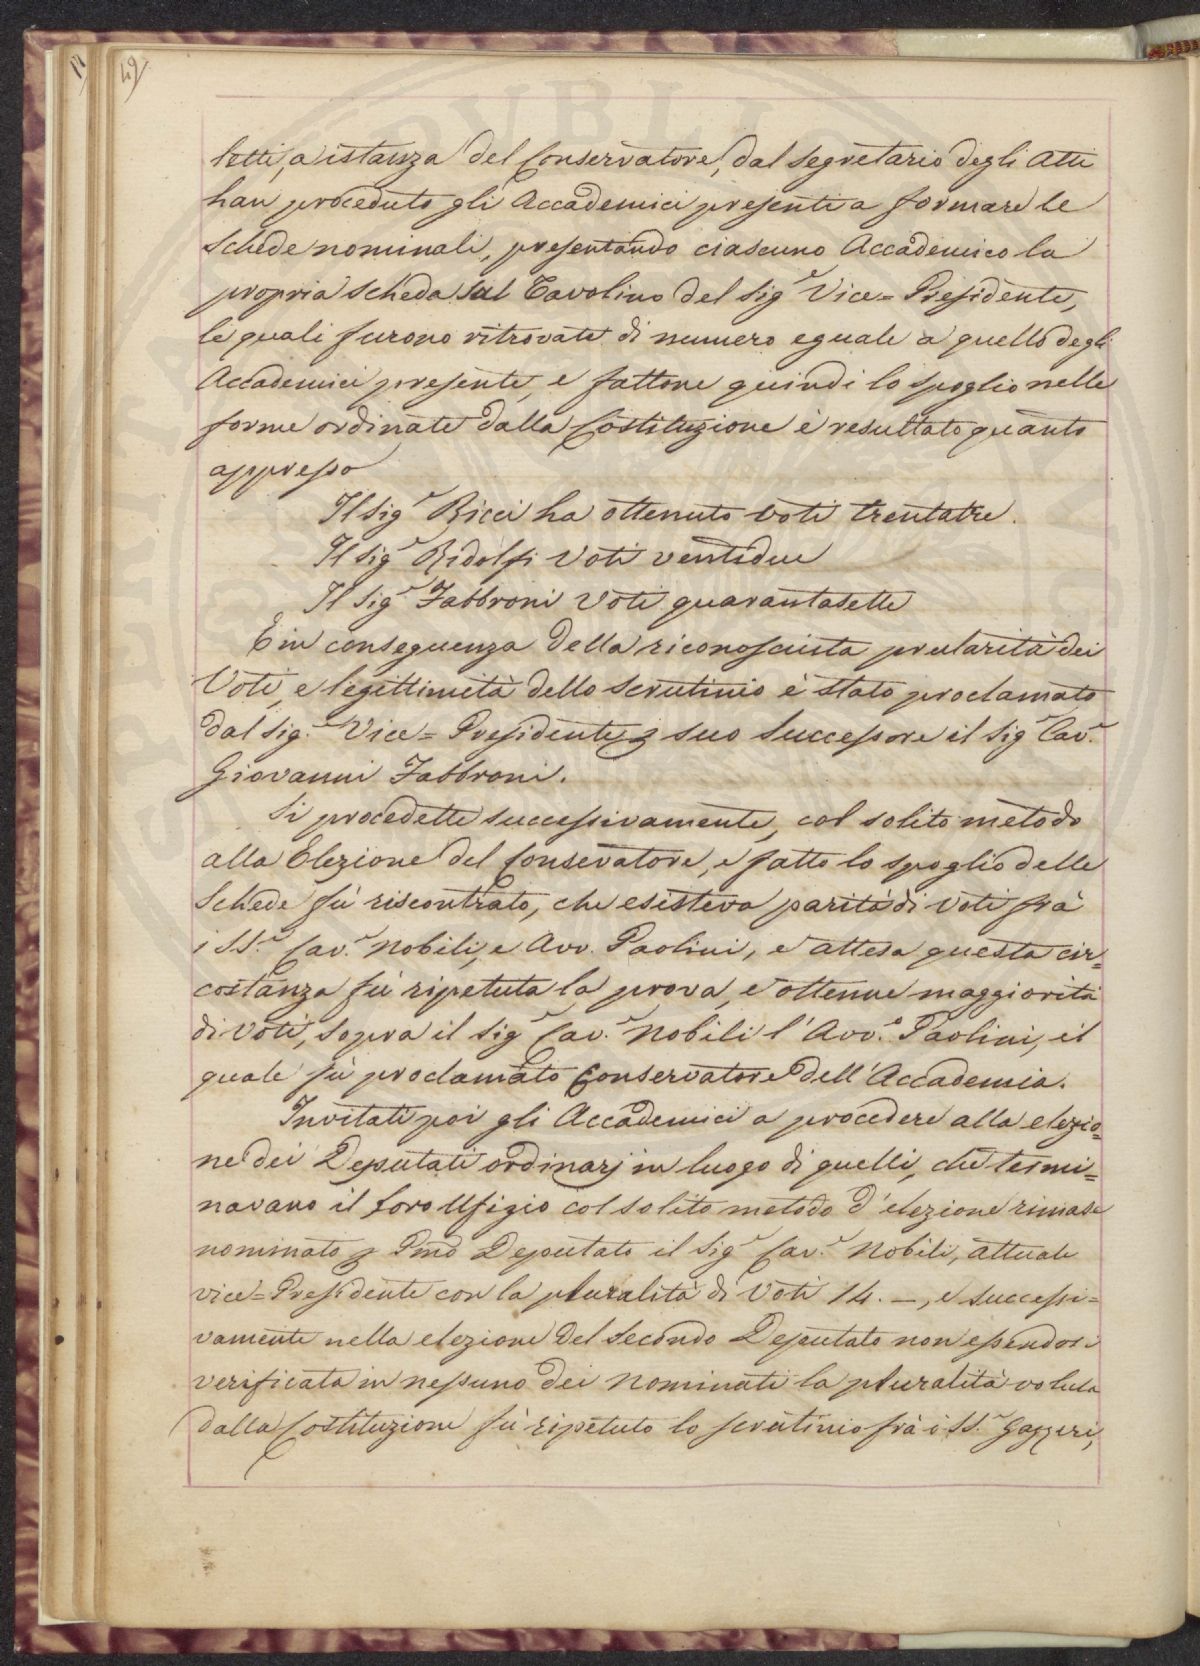 49
letti, a istanza del Conservatore, dal Segretario degli Atti
han proceduto gli Accademici presenti a formare le
Schede nominali, presentando ciascuno Accademico la
propria Scheda sul Tavolino del Sig.e Vice=Presidente,
le quali furono ritrovate di numero eguale a quello degli
Accademici presente, e fattone quindi lo spoglio nelle
forme ordinate dalla Costituzione è resultato quanto
appresso
Il Sig.r Ricci ha ottenuto voti trentatre.
Il Sig.r Ridolfi Voti ventidue
Il Sig.r Fabbroni Voti quarantasette
E in conseguenza della riconosciuta prularità dei
Voti, e legittimità dello scrutinio è stato proclamato
dal Sig.r Vice=Presidente p suo Successore il Sig.r Cav.r
Giovanni Fabbroni.
Si procedette successivamente, col solito metodo
alla Elezione del Consevatore, e fatto lo spoglio delle
Schede fù riscontrato, che esisteva parità di voti frà
i SS.ri Cav.r Nobili, e Avv. Paolini, e attesa questa cir=
costanza fù ripetuta la prova, e ottenne maggiorità
di voti, sopra il Sig.r Cav.r Nobili l'Avv.o Paolini, il
quale fù proclamato Conservatore dell'Accademia.
Invitati poi gli Accademici a procedere alla elezio=
ne dei Deputati ordinarj in luogo di quelli, che termi=
navano il loro Ufizio col solito metodo d'elezione rimase
nominato p Pmo Deputato il Sig.r Cav.r Nobili, attuale
vice=Presidente con la pluralità di Voti 14. —, e successi=
vamente nella elezione del Secondo Deputato non essendosi
verificata in nessuno dei nominati la pluralità voluta
dalla Costituzione fù ripetuto lo scrutinio frà i SS.ri Gazzeri,